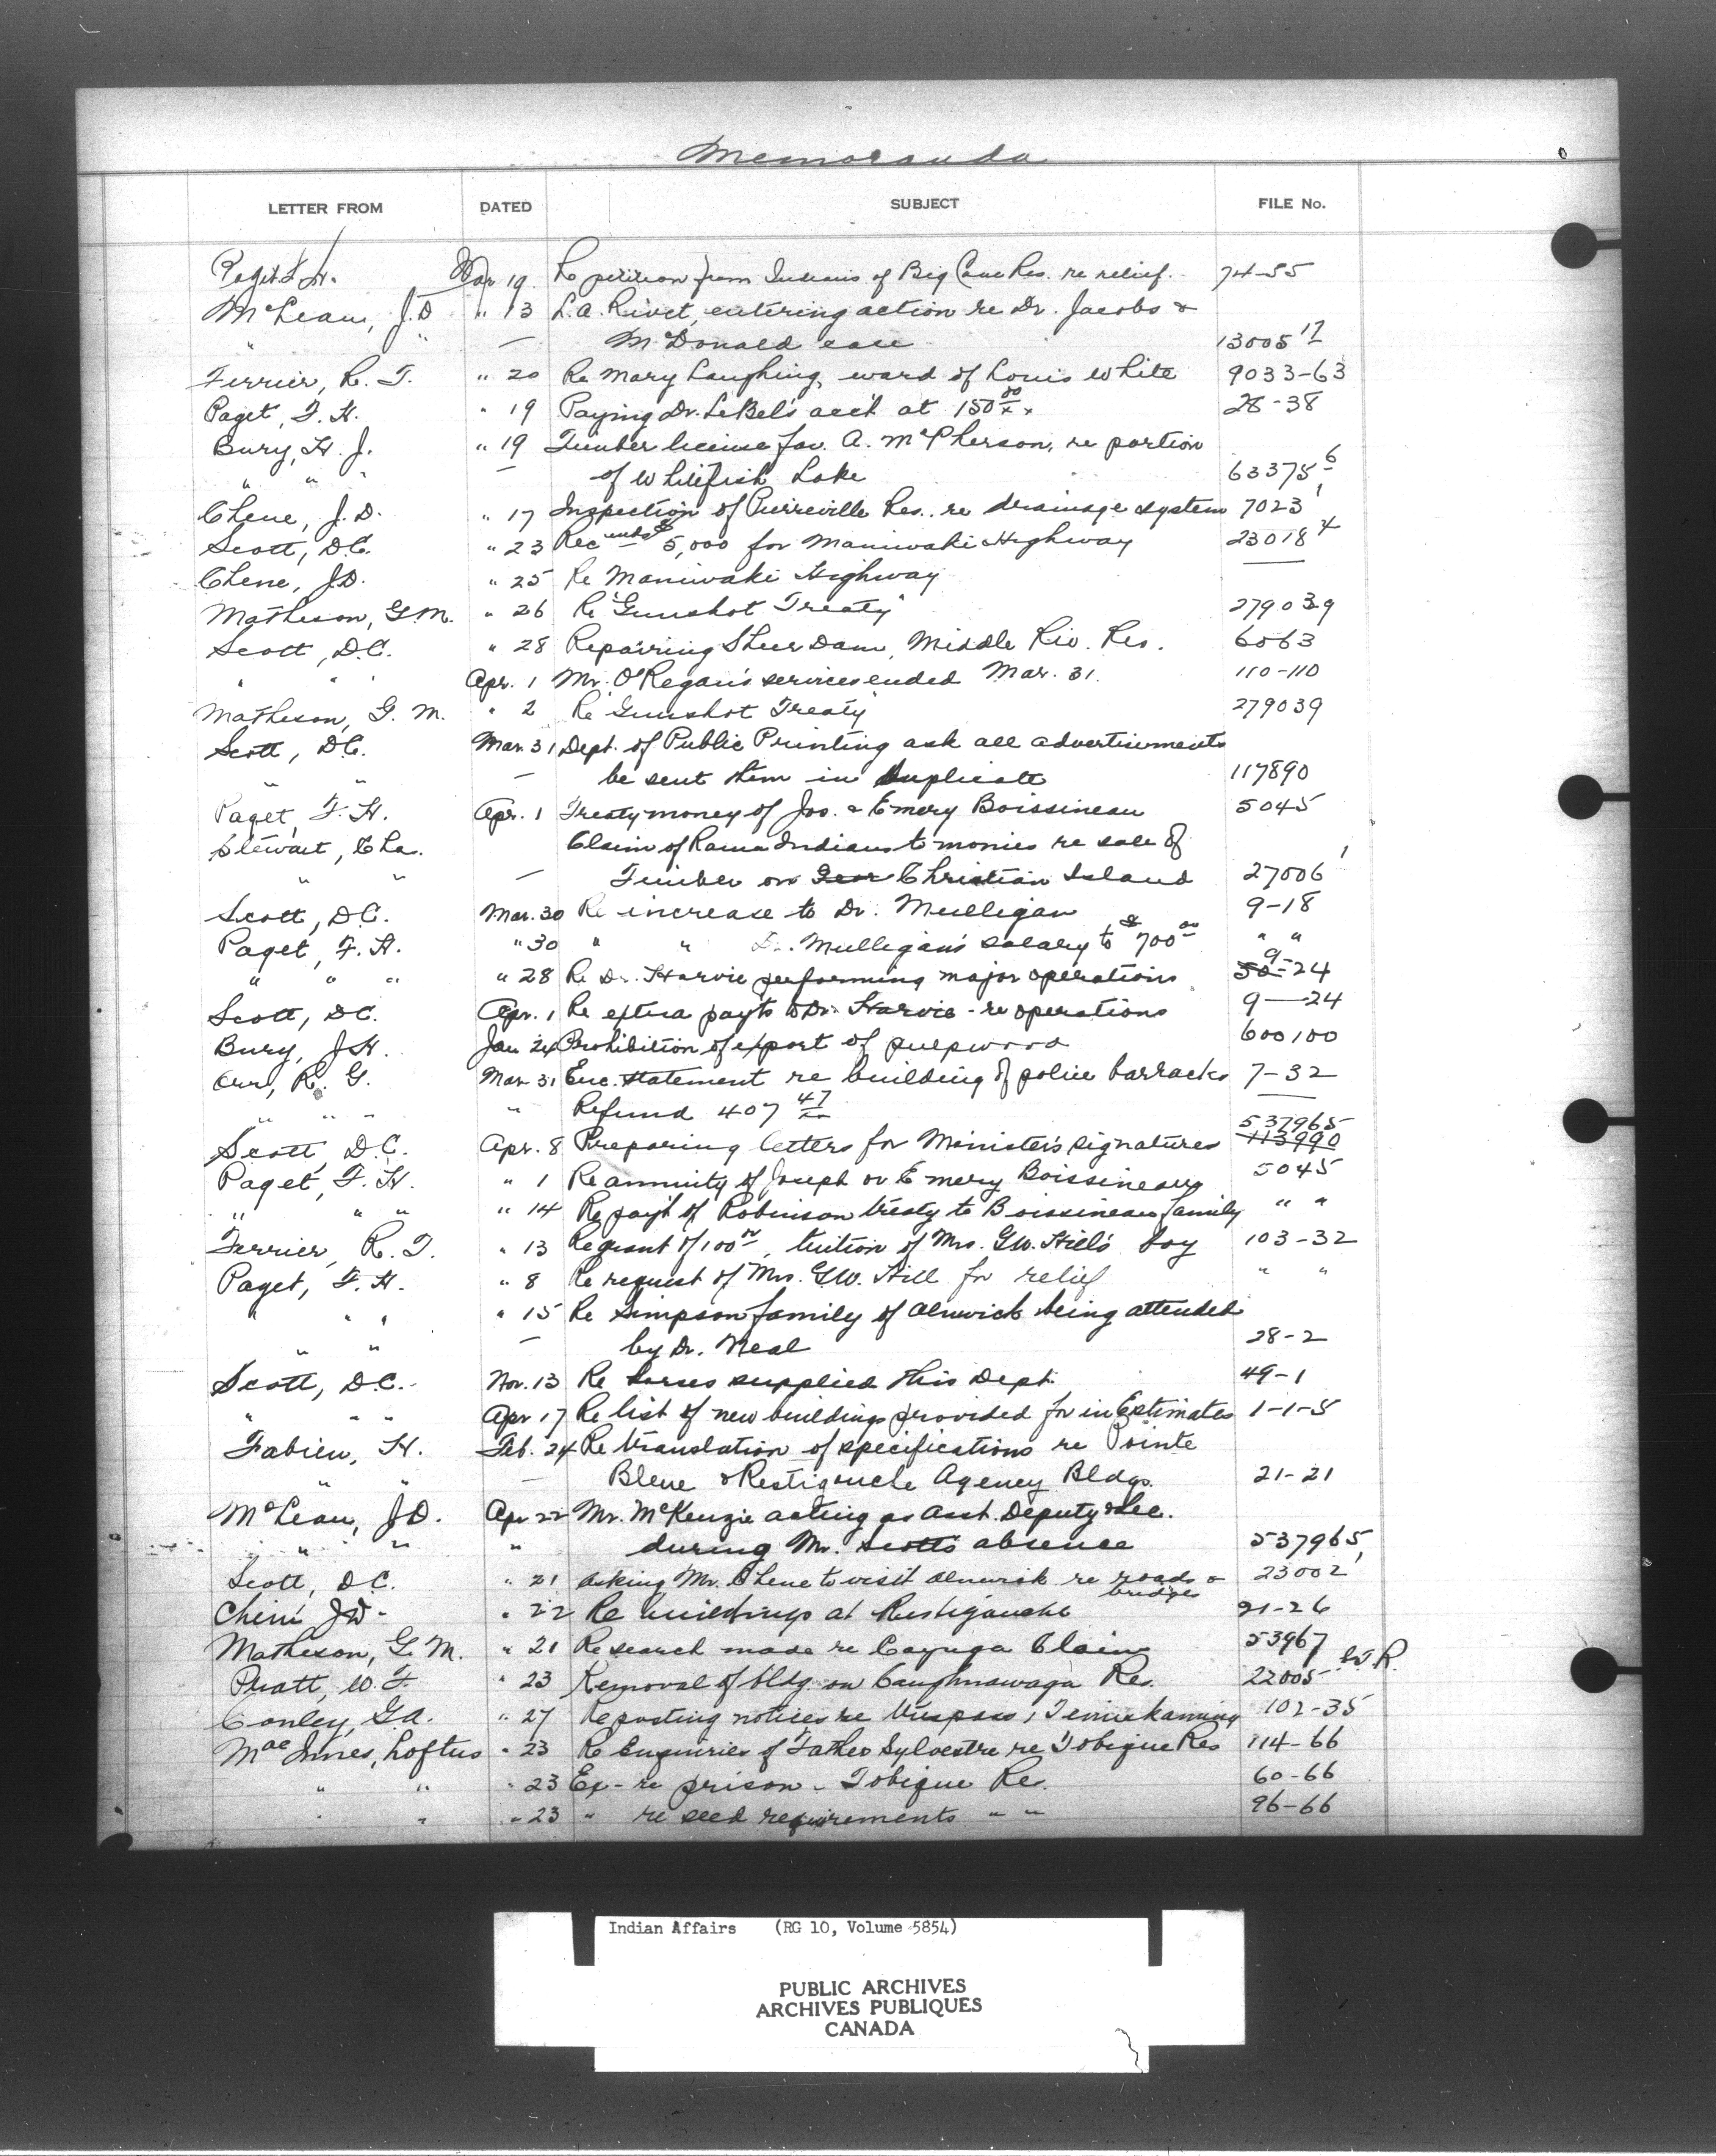 Memoranda
LETTER FROM DATED SUBJECT FILE No.
Paget F. H. Mar 19. Re petition from Indians of Big Cove Res. re relief. 74-55
McLean, J.D " 13 L.A. Rivet, entering action re Dr. Jacobs &
" " — McDonald case 13005 17
Ferrier, R. T. " 20 Re Mary Laughing, ward of Louis White 9033-63
Paget, F. H. " 19 Paying Dr. LeBel's acct at 150 00/xx 28-38
Bury, H. J. " 19 Timber license fav. A. McPherson, re portion
" " " — of Whitefish Lake 63375 6
Chene, J.D. " 17 Inspection of Pierreville Res. re drainage system 7023 1
Scott, D.C. " 23 Rec ends $5,000 for Maniwaki Highway 23018 4
Chene, J.D. " 25 Re Maniwaki Highway —
Matheson, G.M. " 26 Re "Gunshot Treaty" 279039
Scott, D.C. " 28 Repairing Sheer Dam, Middle Riv. Res. 6063
" " " Apr. 1 Mr. O'Regan's services ended Mar. 31. 110-110
Matheson, G. M. " 2 Re "Gunshot Treaty" 279039
Scott, D.C. Mar. 31 Dept. of Public Printing ask all advertisements
" " — be sent them in duplicate 117890
Paget, F. H. Apr. 1 Treaty money of Jos. & Emery Boissineau 5045
Stewart, Chas. Claim of Rama Indians to monies re sale of
" " — Timber on Christian Island 27006 1
Scott, D.C. Mar. 30 Re increase to Dr. Mulligan 9-18
Paget, F. H. " 30 " " Dr. Mulligan's salary to $700 00 " "
" " " " 28 Re Dr. Harvie performing major operations 50- 9-24
Scott, D.C. Apr. 1 Re extra pay'ts to Dr. Harvie - re operations 9—24
Bury, J.H. Jan 24 Prohibition of export of pulpwood 600100
Orr, R. G. Mar. 31 Enc. statement re building of police barracks 7-32
" " " " Refund 407 47/xx —
537965
Scott, D.C. Apr. 8 Preparing letters for Minister's signatures 113990
Paget, F. H. " 1 Re annuity of Joseph or Emery Boissineau 5045
" " " " 14 Re pay't of Robinson treaty to Boissineau family " "
Ferrier, R. T. " 13 Re grant of 100 00, tuition of Mrs. G.W. Hill's boy 103-32
Paget, F. H. " 8 Re request of Mrs. G.W. Hill for relief " "
" " " " 15 Re Simpson family of Alnwick being attended
" " — by Dr. Neal 28-2
Scott, D.C. Nov. 13 Re supplied this Dept. 49-1
" " " Apr 17 Re list of new buildings provided for in Estimates 1-1-5
Fabien, H. Feb. 24 Re translation of specifications re Pointe
" " — Bleue & Restigouche Agency Bldgs. 21-21
McLean, J.D. Apr 22 Mr. McKenzie acting as Asst. Deputy & Sec.
" " " " during Mr. Scott's absence 537965 1
Scott, D.C. " 21 Asking Mr. Chene to visit Alnwick re roads & bridges 23002
Chené J.D. " 22 Re buildings at Restigouche 21-26
Matheson, G. M. " 21 Re search made re Cayuga Claim 53967
Pratt, W. F. " 23 Removal of bldg. on Caughnawaga Res. 22005
Conley, G.A. " 27 Re posting notices re trespass, Temiskaming 102-35
MacInnes, Loftus " 23 Re Enquiries of Father Sylvestre re Tobique Res 114-66
" " " 23 Ex - re prison - Tobique Res. 60-66
" " " 23 " re seed requirements " " 96-66
Indian Affairs (RG 10, Volume 5854)
PUBLIC ARCHIVES
ARCHIVES PUBLIQUES
CANADA